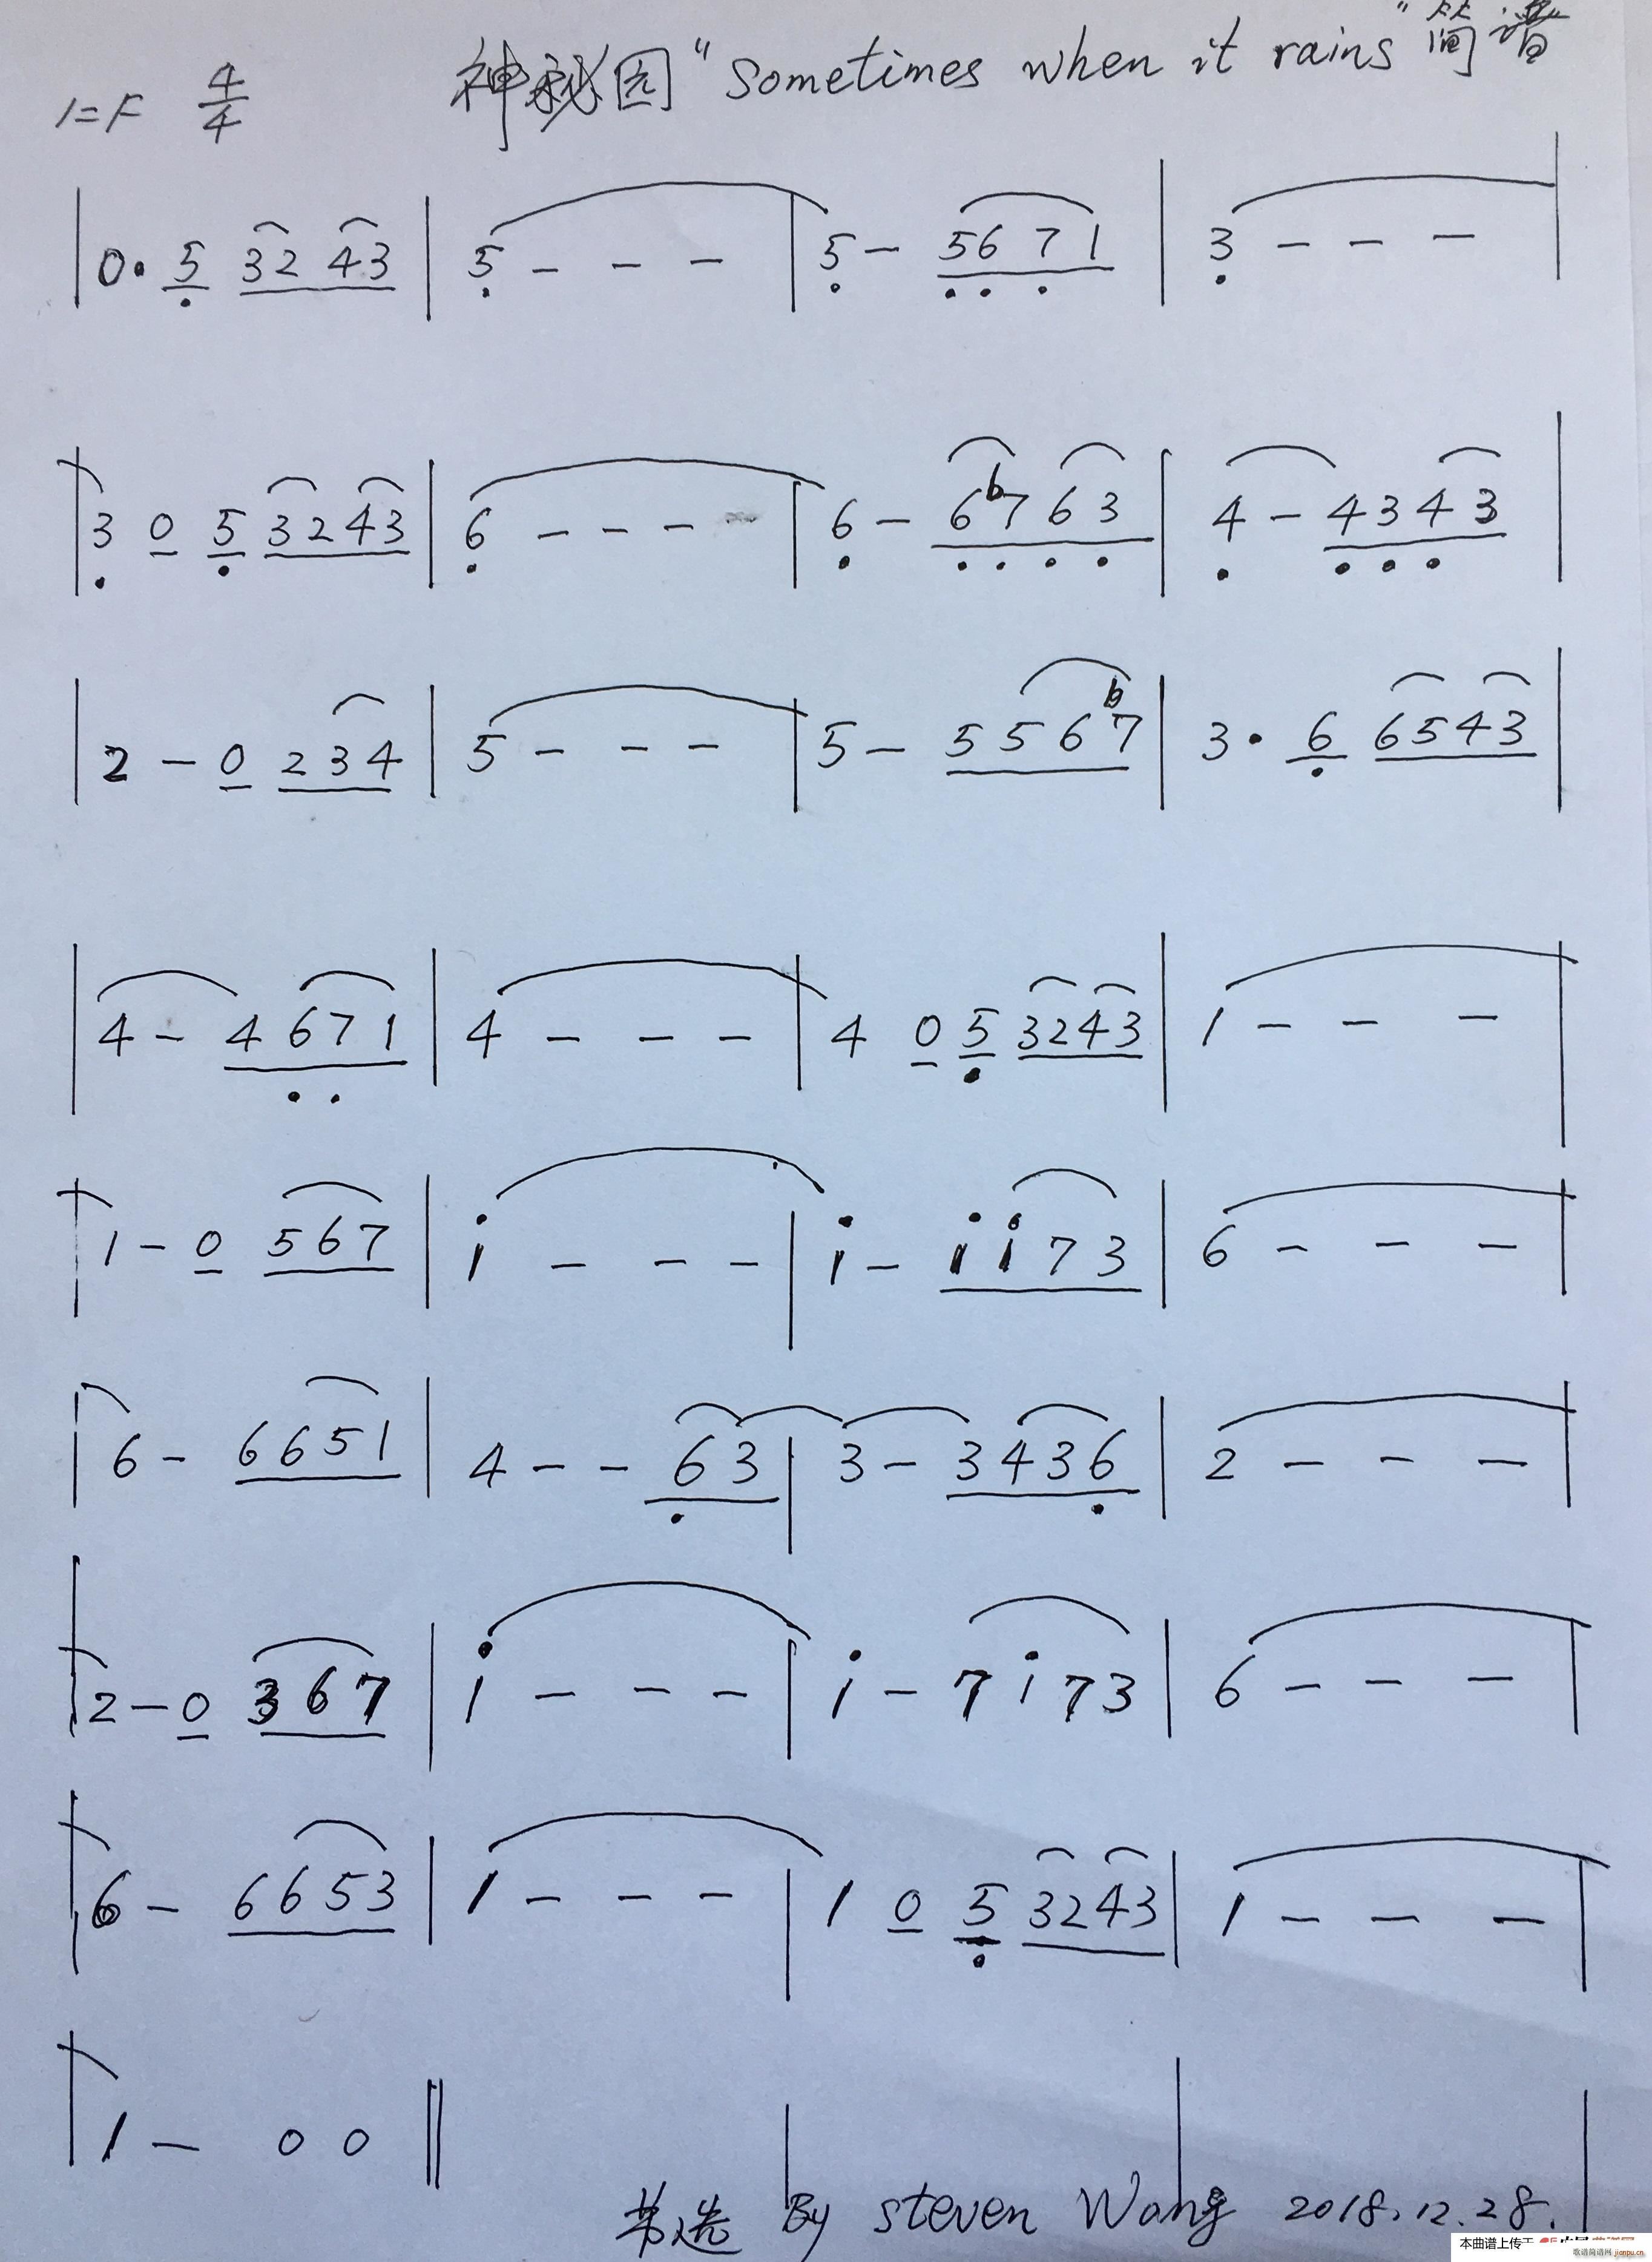 1=F 4/4 神秘园"Sometimes when it rains"简谱
| 0· 5 32 43 | 5 - - - | 5 - 5671 | 3 - - - |
| 3 0 5 3243 | 6 - - - | 6 - 6b763 | 4 - 4343 |
| 2 - 0 234 | 5 - - - | 5 - 556b7 | 3· 6 6543 |
| 4 - 4671 | 4 - - - | 4 0 5 3243 | 1 - - - |
| 1 - 0 567 | i - - - | i - ii73 | 6 - - - |
| 6 - 6651 | 4 - - 63 | 3 - 3436 | 2 - - - |
| 2 - 0 367 | i - - - | i - 7i73 | 6 - - - |
| 6 - 6653 | 1 - - - | 1 0 5 3243 | 1 - - - |
| 1 - 0 0 ||
By Steven Wang 2018.12.28.
本曲谱上传于
歌谱简谱网 jianpu.cn